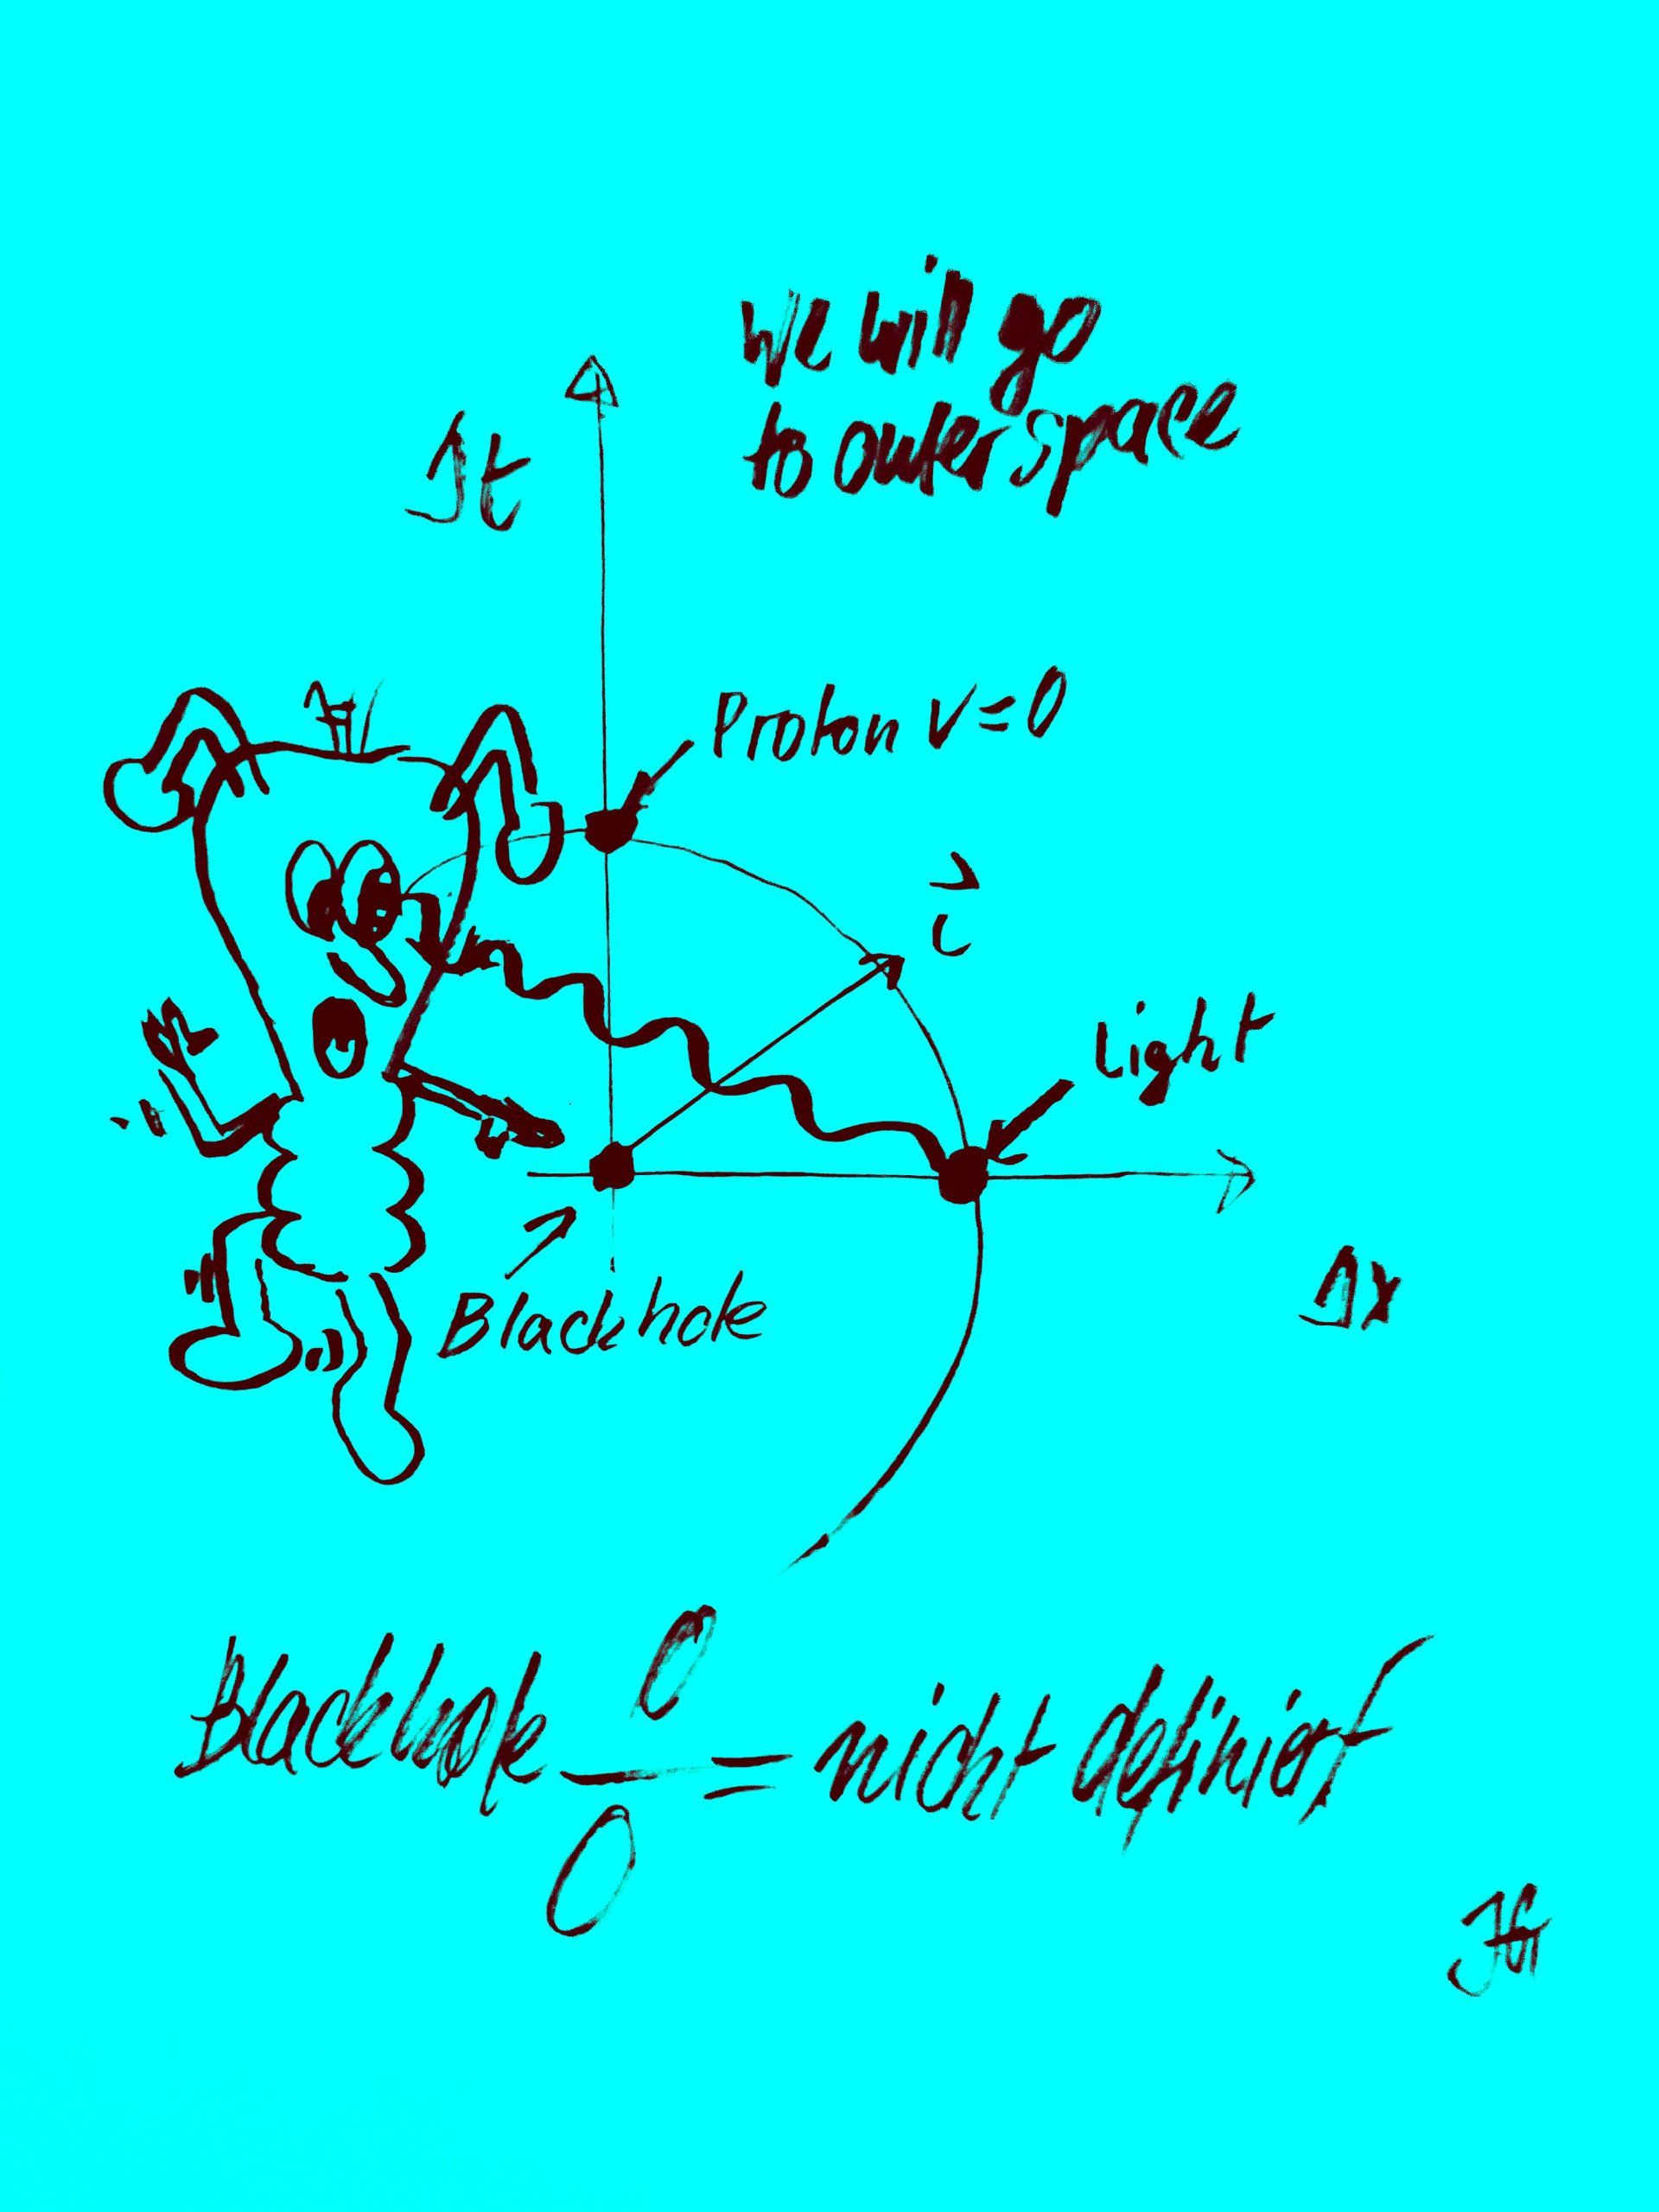 We will go
to outer space
Δt
Proton v=0
c
Light
Δx
Black hole
Black hole 0/0 = nicht definiert